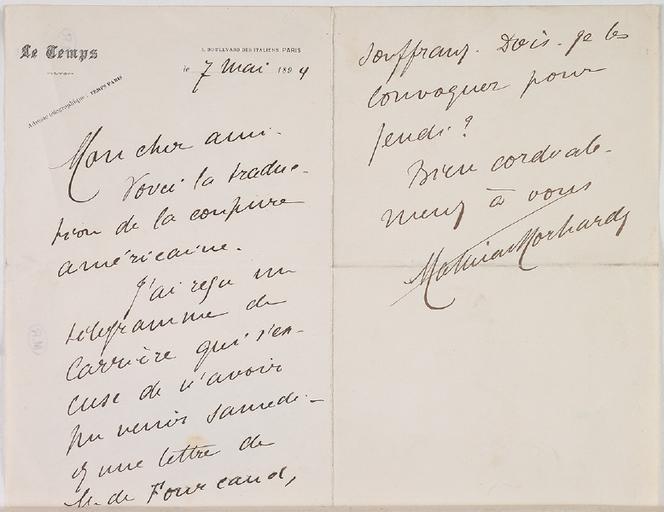 Le Temps
5, BOULEVARD DES ITALIENS, PARIS
le 7 mai 1894
Adresse télégraphique : TEMPS PARIS
Mon cher ami.
Voici la traduc-
tion de la coupure
américaine.
J'ai reçu un
télégramme de
Carrière qui s'ex-
cuse de n'avoir
pu venir samedi –
et une lettre de
M. de Fourcaud,
souffrant. Dois-je les
convoquer pour
jeudi ?
Bien cordiale-
ment à vous
Mathias Morhardt